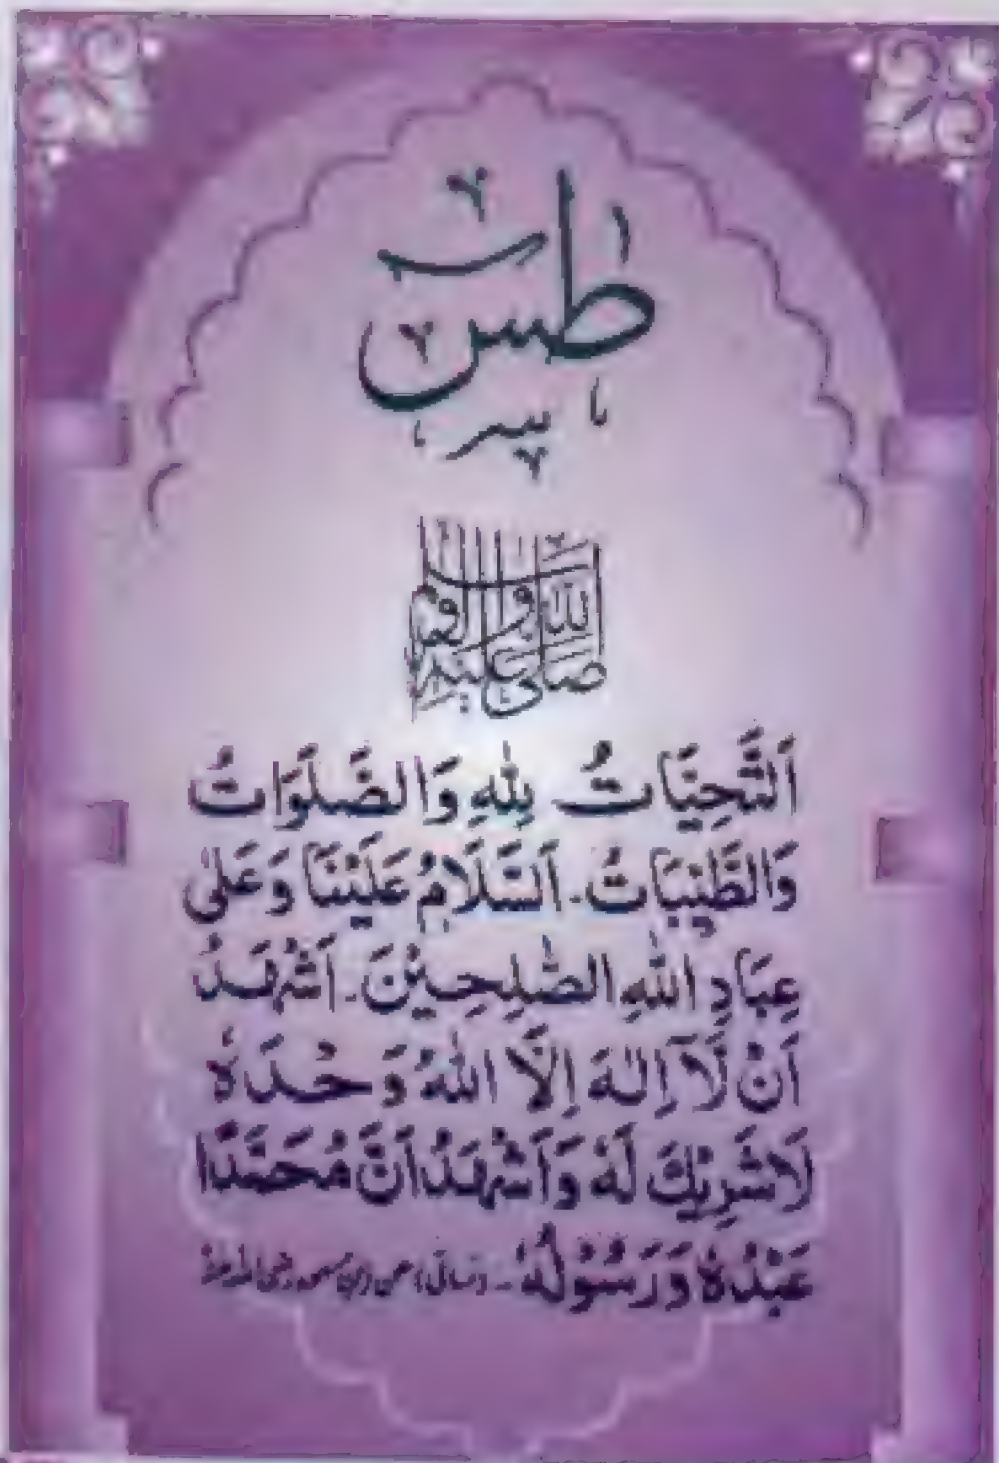 طٰسٓ
صَلَّى اللهُ عَلَيْهِ وَاٰلِهٖ وَسَلَّم
اَلتَّحِيَّاتُ لِلّٰهِ وَالصَّلَوَاتُ
وَالطَّيِّبَاتُ۔ اَلسَّلَامُ عَلَيْنَا وَعَلٰى
عِبَادِ اللّٰهِ الصّٰلِحِيْنَ۔ اَشْهَدُ
اَنْ لَّآ اِلٰهَ اِلَّا اللّٰهُ وَحْدَهٗ
لَاشَرِيْكَ لَهٗ وَاَشْهَدُ اَنَّ مُحَمَّدًا
عَبْدُهٗ وَرَسُوْلُهٗ۔ (نسائی) عن ابن مسعود رضی اللہ عنہ